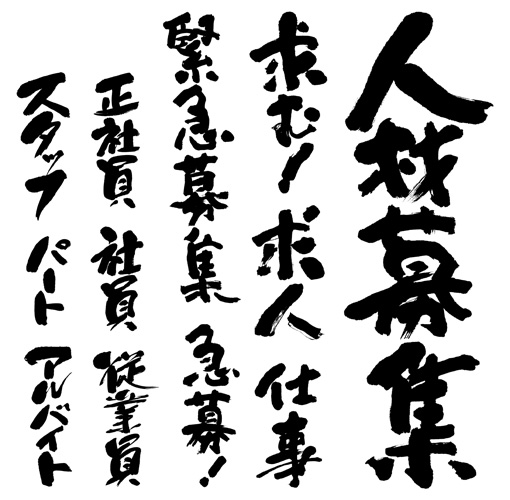 人材募集
求む！
求人
仕事
緊急募集
急募！
正社員
社員
従業員
スタッフ
パート
アルバイト